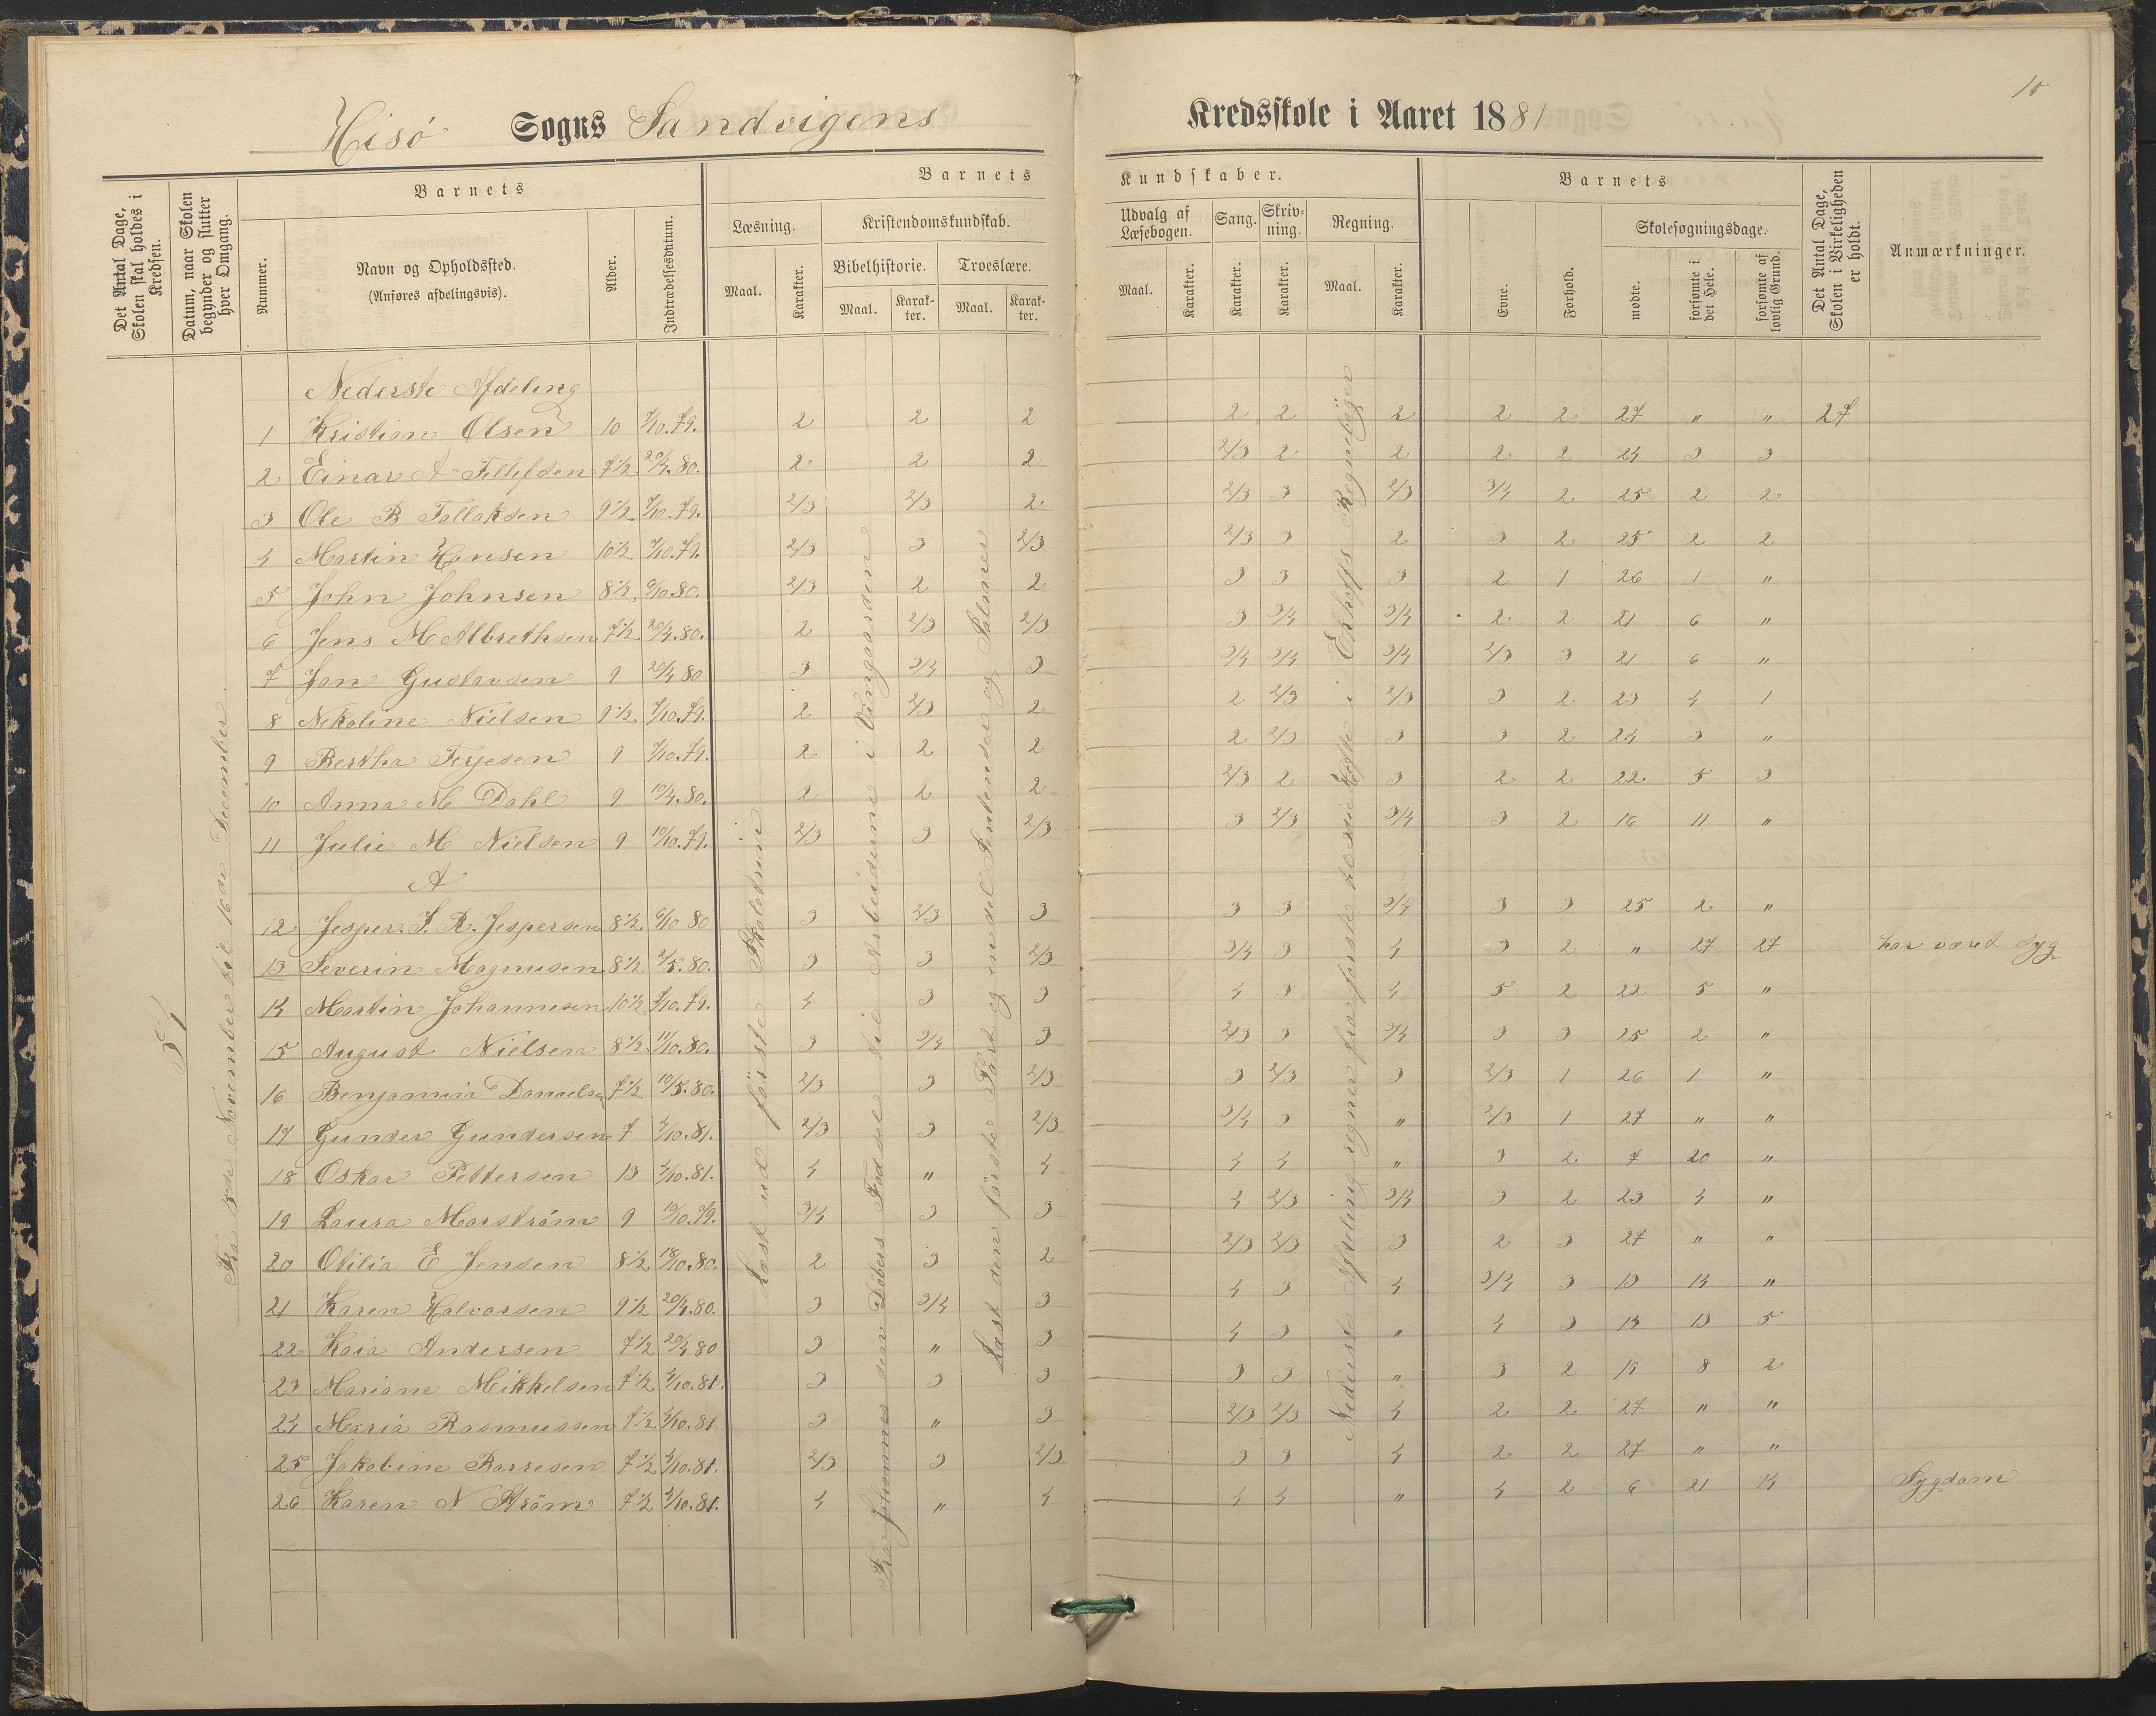 10
Hisö Sogns Sandvigens Kredsskole i Aaret 1881
Det Antal Dage, Skolen skal holdes i Kredsen.
Datum, naar Skolen begynder og slutter hver Omgang.
Barnets
Nummer.
Navn og Opholdssted.
(Anføres afdelingsvis).
Alder.
Indtrædelsesdatum.
Barnets Kundskaber.
Læsning.
Maal.
Karakter.
Kristendomskundskab.
Bibelhistorie.
Maal.
Karakter.
Troeslære.
Maal.
Karakter.
Udvalg af Læsebogen.
Maal.
Karakter.
Sang.
Karakter.
Skrivning.
Karakter.
Regning.
Maal.
Karakter.
Barnets
Evne.
Forhold.
Skolesøgningsdage.
mødte.
forsømte i det Hele.
forsømte af lovlig Grund.
Det Antal Dage, Skolen i Virkeligheden er holdt.
Anmærkninger.
Nederste Afdeling
1 Kristian Olsen 10 7/10.79. 2 2 2 2 2 2 2 2 27 " " 27
2 Einar A Tellefsen 7 1/2 20/4.80. 2 2 2 2/3 2 2 2 2 24 3 3
3 Ole B Tallaksen 9 1/2 7/10.79. 2/3 2/3 2 2/3 3 2/3 3/4 2 25 2 2
4 Martin Hansen 10 1/2 7/10.79. 2/3 3 2/3 2/3 3 2 3 2 25 2 2
5 John Johnsen 8 1/2 6/10.80. 2/3 2 2 3 3 3 2 1 26 1 "
6 Jens M Albrethsen 7 1/2 20/4.80. 2 2/3 2/3 3 3/4 3/4 2 2 21 6 "
7 Jan Gustavsen 9 20/4 80 3 3/4 3 3/4 3/4 3/4 2/3 3 21 6 "
8 Nekoline Nielsen 9 1/2 7/10.79. 2 2/3 2 2 2/3 2/3 3 2 23 4 1
9 Bertha Terjesen 9 7/10.79. 2 2 2 2 2/3 3 3 2 24 3 "
10 Anna M Dahl 9 10/4.80. 2 2 2 2/3 2 3 2 2 22 5 3
11 Julie M Nielsen 9 10/10.79. 2/3 3 2/3 3 2/3 3/4 3 2 16 11 "
A
12 Jesper. S. R. Jespersen 8 1/2 6/10 80 3 2/3 3 3 3 3/4 3 3 25 2 "
13 Severin Magnusen 8 1/2 2/5.80. 3 3 2/3 3/4 3 4 3 2 " 27 27 har været syg
14 Martin Johannesen 10 1/2 7/10.79. 4 3 3 4 3 4 5 2 22 5 "
15 August Nielsen 8 1/2 11/10.80. 3 3/4 3 2/3 3 3/4 3 3 25 2 "
16 Benjamin Danielsen 7 1/2 10/5.80. 2/3 3 2/3 3 2/3 3 2/3 1 26 1 "
17 Gunder Gundersen 7 4/10.81. 2/3 3 2/3 3/4 3 " 2/3 1 27 " "
18 Oskar Pettersen 13 4/10.81. 4 " 4 4 4 " 3 2 7 20 "
19 Laura Marström 9 10/10.79. 3/4 3 3 4 2/3 3/4 3 2 23 4 "
20 Otilia E Jensen 8 1/2 18/10.80. 2 3 2 2/3 2/3 3 2 3 27 " "
21 Karen Halvorsen 9 1/2 20/4.80. 3 3/4 3 4 3 4 3/4 3 13 14 "
22 Kaia Andersen 7 1/2 20/4 80 3 " 3 4 3 " 4 3 14 13 5
23 Mariane Mikkelsen 7 1/2 4/10.81. 3 3 3 3 3 " 3 2 19 8 2
24 Maria Rasmussen 7 1/2 4/10.81 3 " 3 2/3 2/3 4 2 2 27 " "
25 Jakobine Borresen 7 1/2 4/10.81. 2/3 3 2/3 3 3 4 2 2 27 " "
26 Karen N Ström 7 1/2 4/10.81. 4 " 4 4 4 " 4 2 6 21 14 Sygdom
Fra 15de November til 16de December
Læst ud første Skoletrin
Fra Johannes den Døbers Fødsel til Arbeiderne i Vingaarden
Læst den første Part og en del Sentenser og Salmer
Nederste Afdeling regner fra første til siette Hefte i Ekhoffs Regnebøger